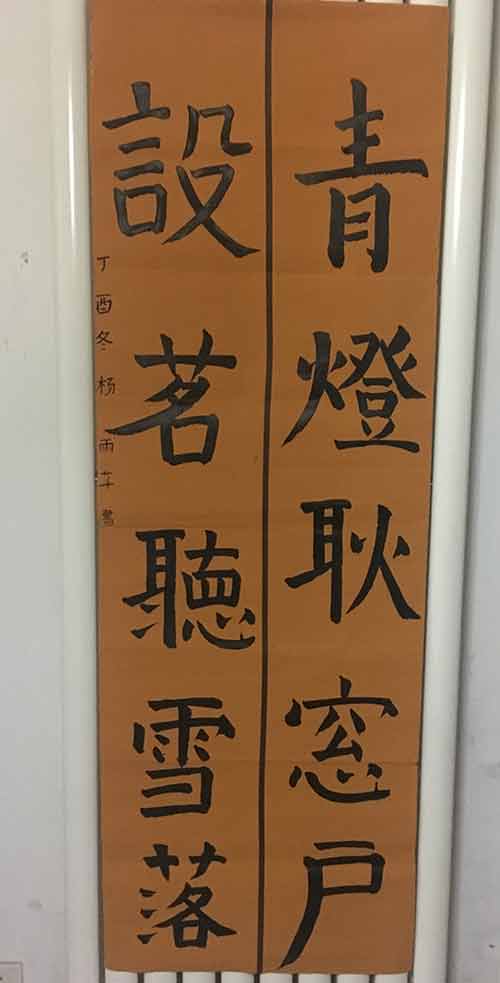 青燈耿窓户
設茗聽雪落
丁酉冬杨雨书